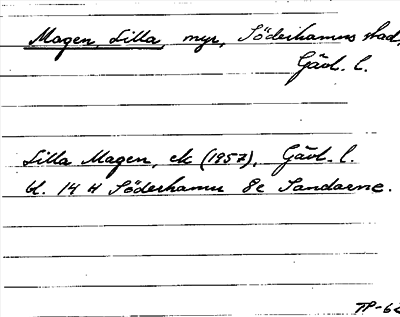 Magen, Lilla, myr, Söderhamns stad,
Gävl. l.
Lilla Magen, ek (1957), Gävl. l.
bl. 14 H Söderhamn 8e Sandarne.
TP-62